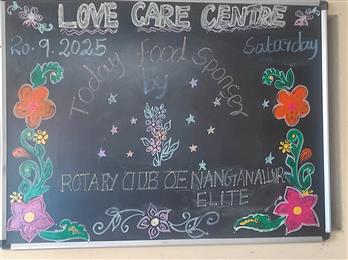 LOVE CARE CENTRE
20.9.2025 Saturday
Today food Sponser
by
ROTARY CLUB OF NANGANALLUR
ELITE